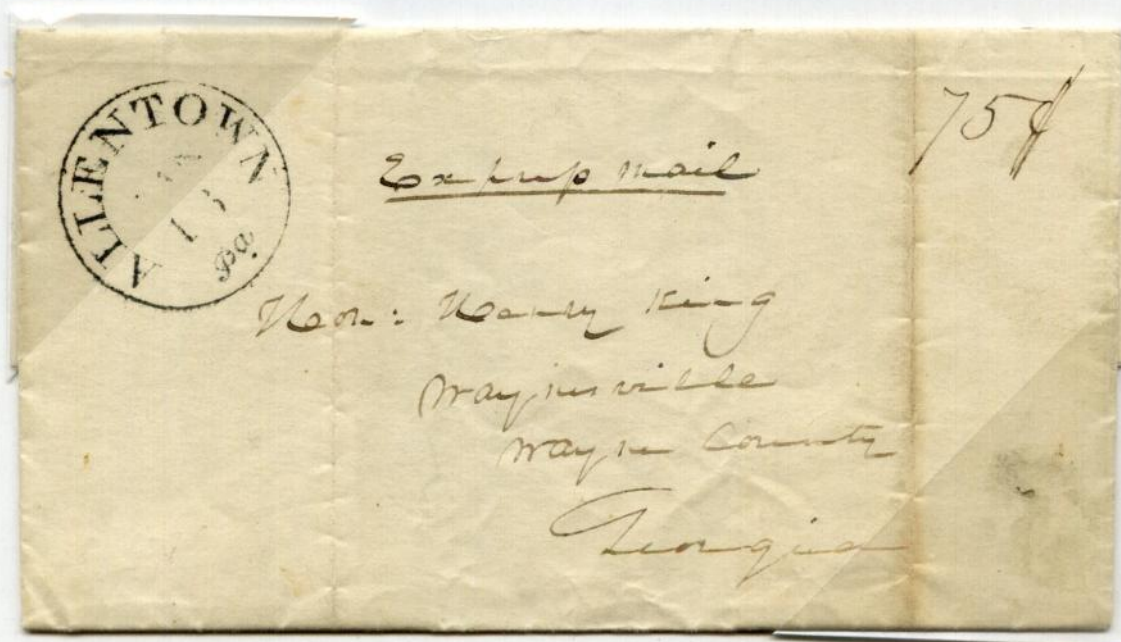 ALLENTOWN
13
Pa
75¢
Express Mail
Hon: Henry King
Waynesville
Wayne County
Georgia